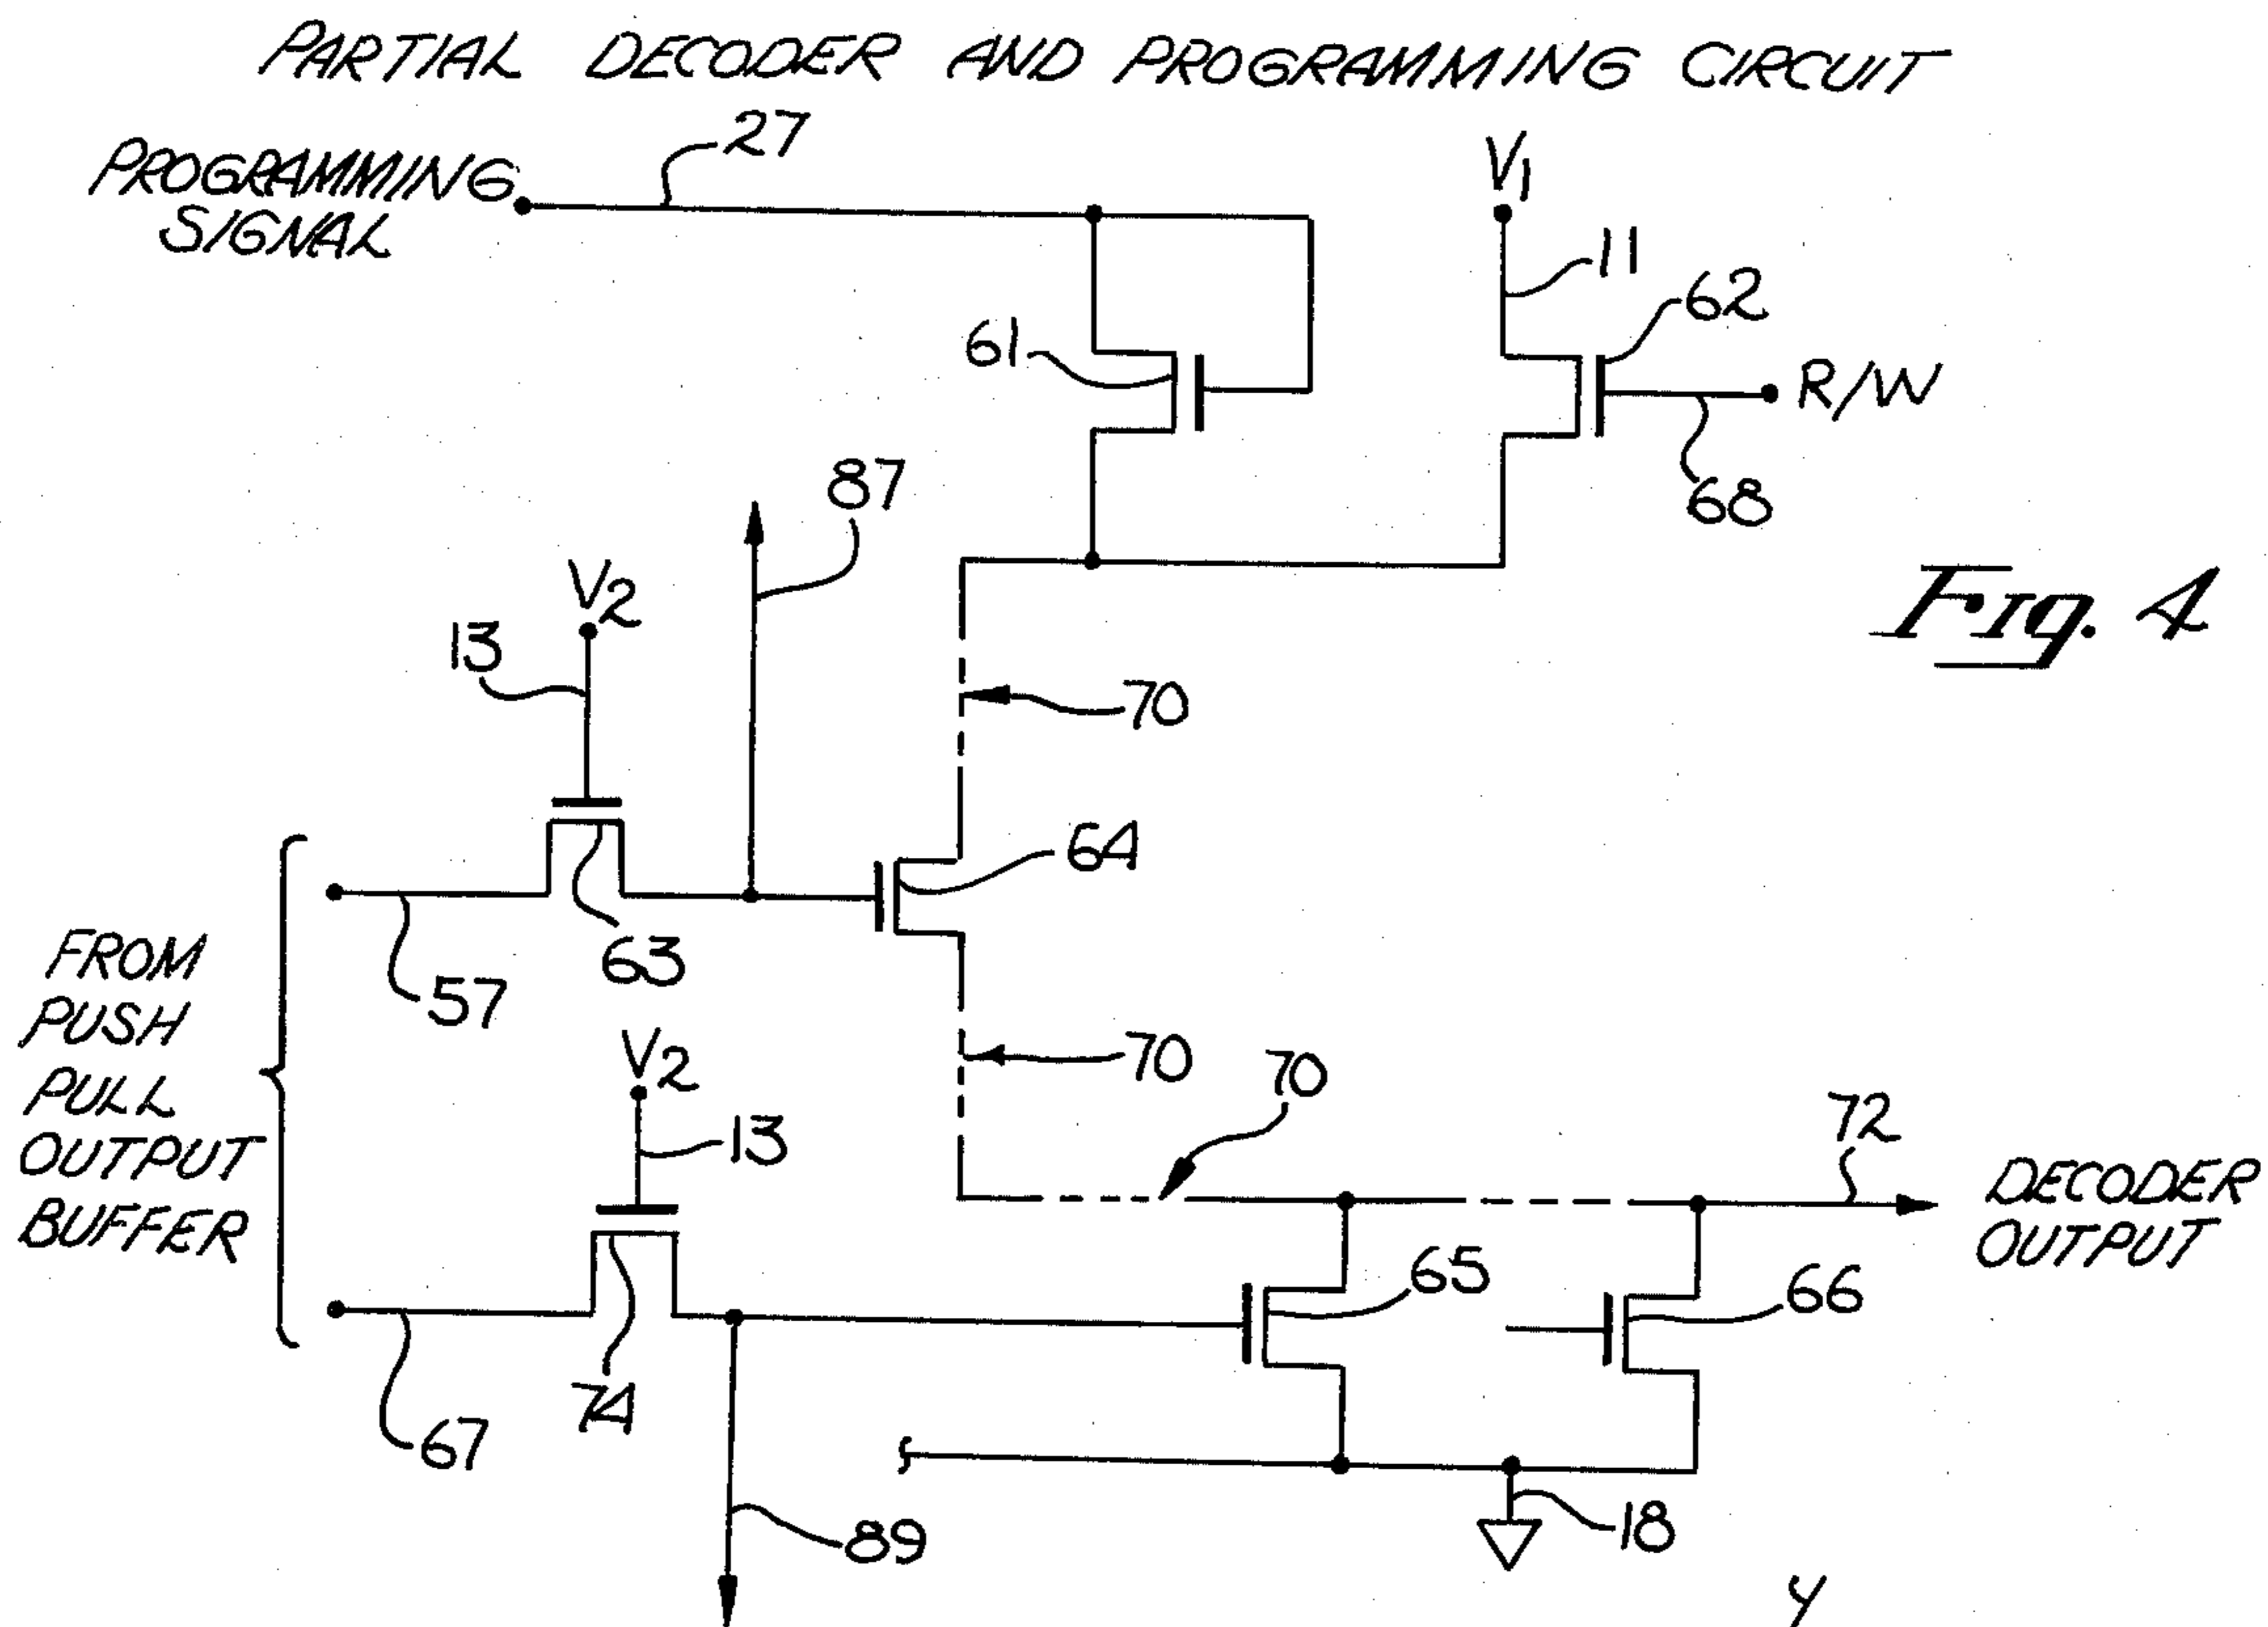 PARTIAL DECODER AND PROGRAMMING CIRCUIT
PROGRAMMING
SIGNAL
27
V1
11
62
61
R/W
68
87
V2
13
Fig. 4
70
64
63
57
FROM
PUSH
PULL
OUTPUT
BUFFER
V2
13
70
70
72
DECODER
OUTPUT
65
66
74
67
89
18